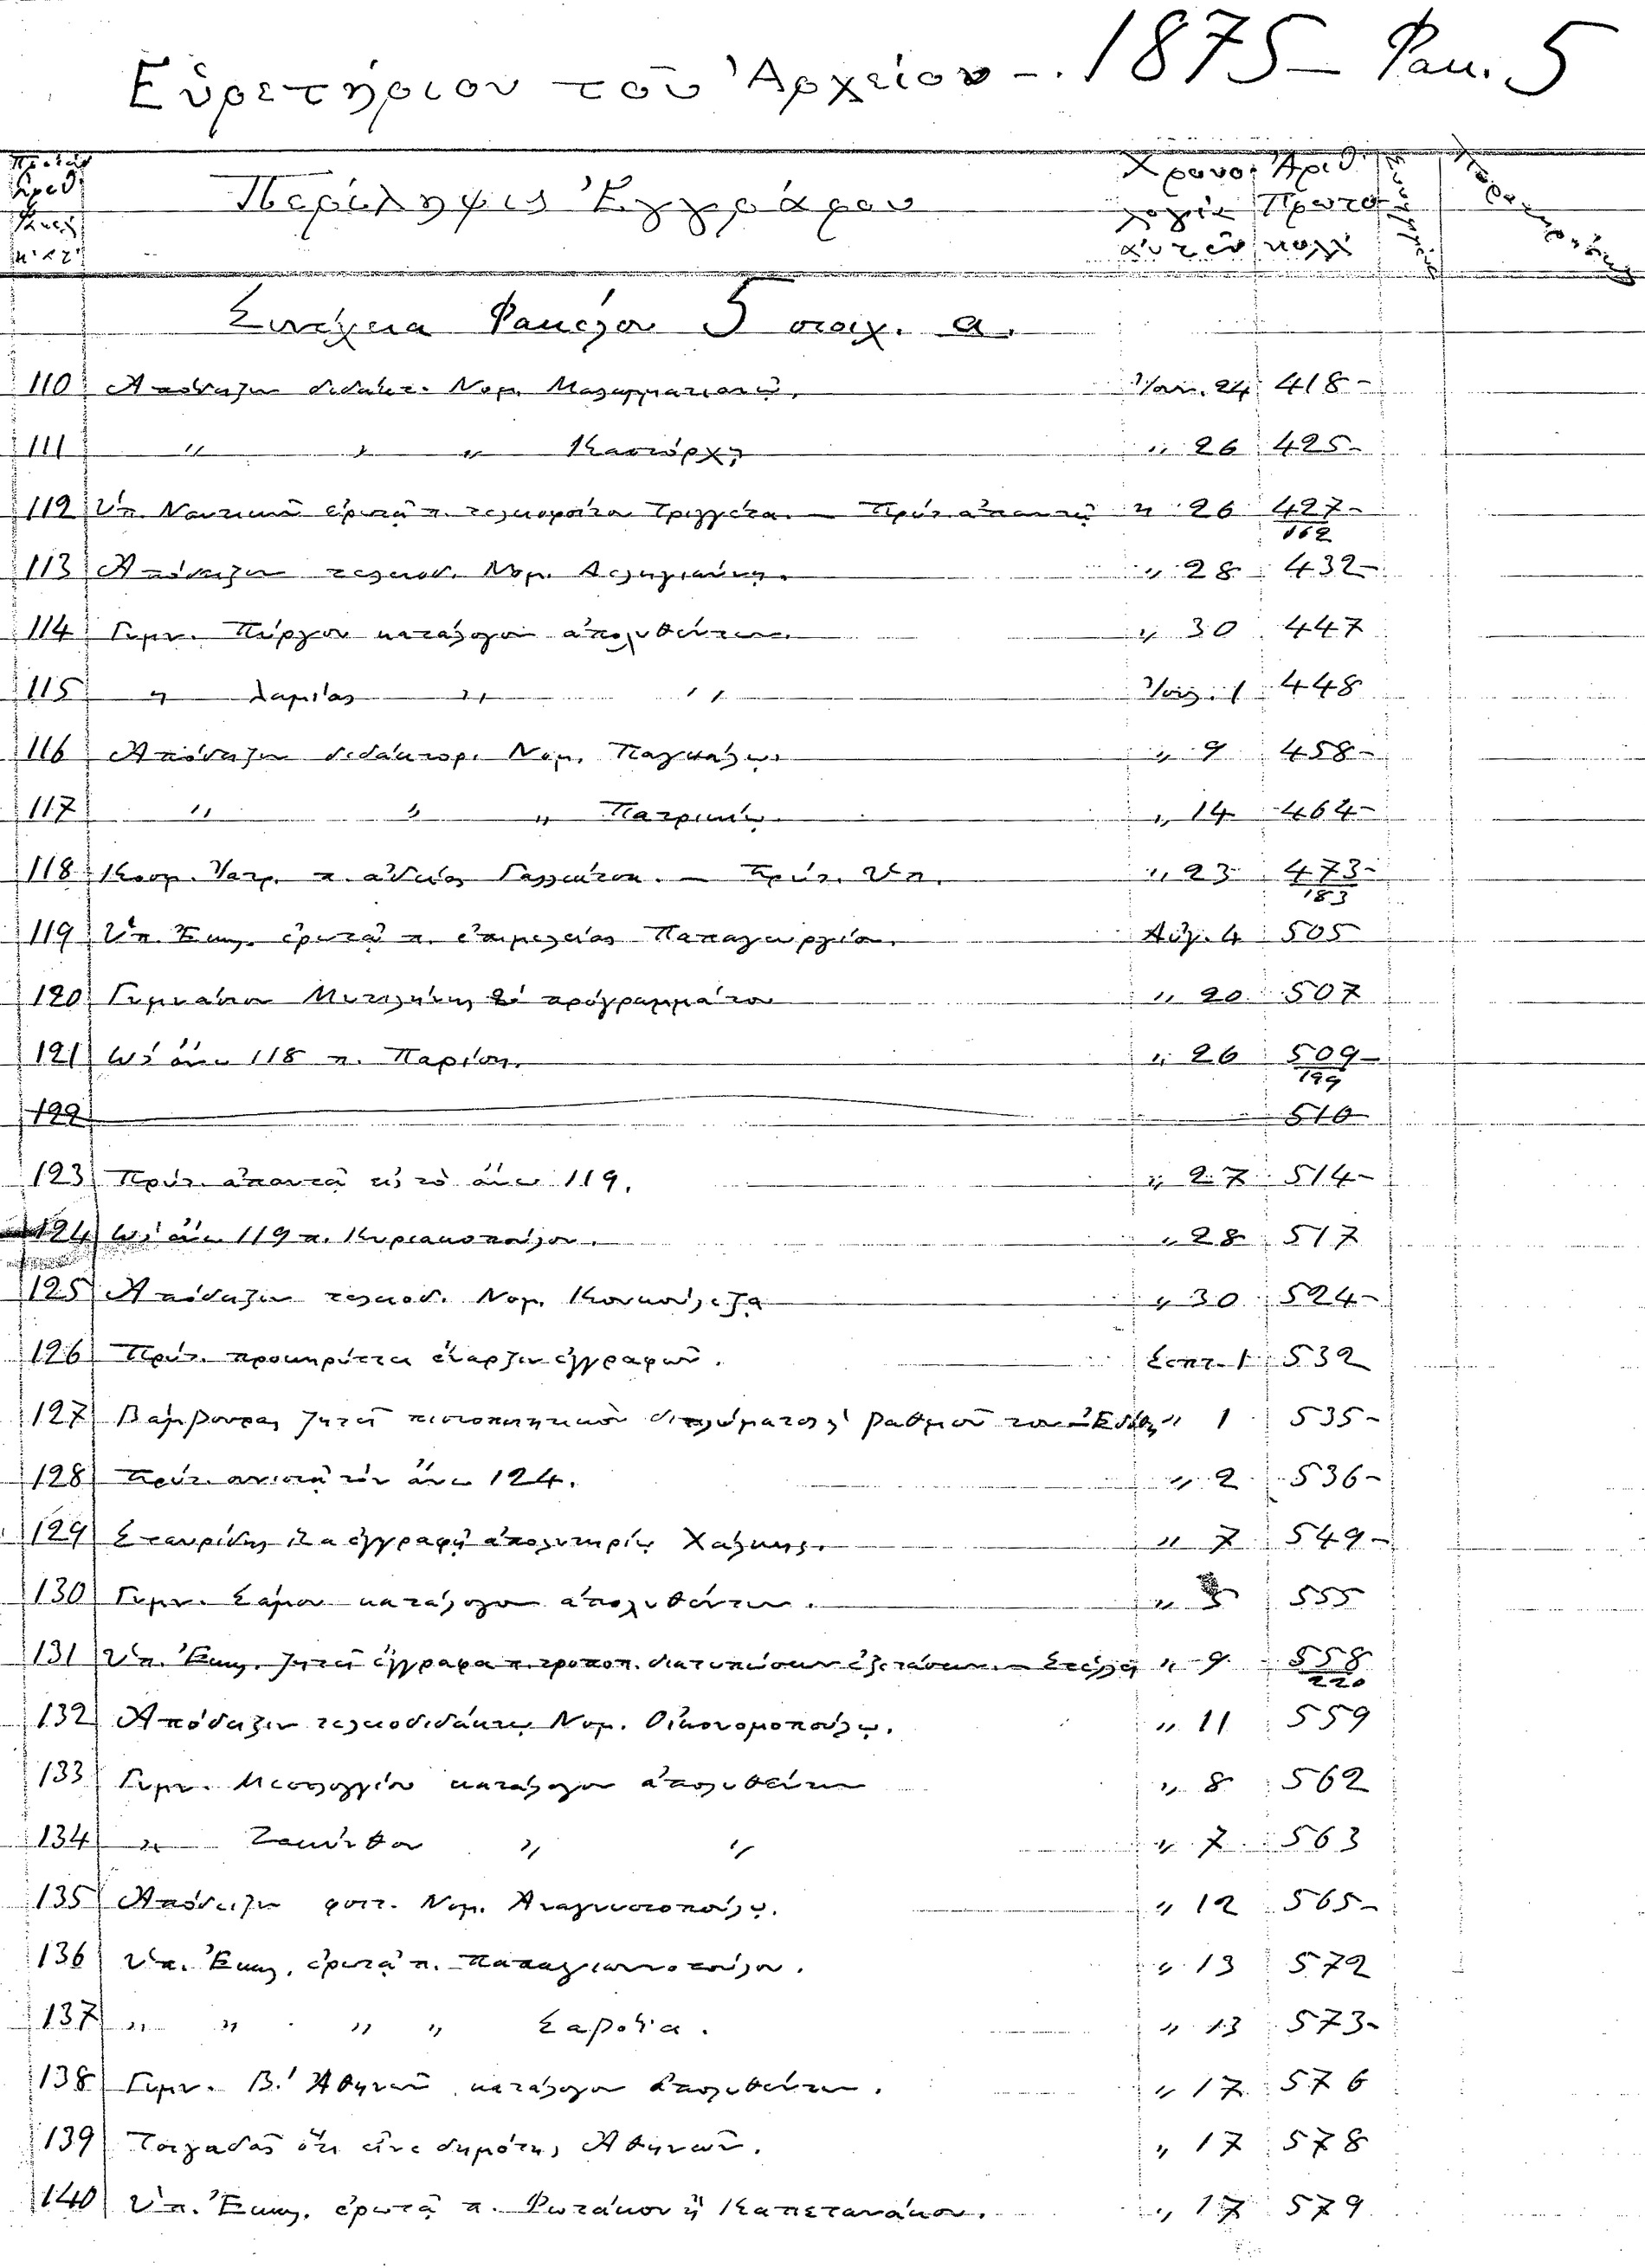 Εὑρετήριον τοῦ Ἀρχείου - 1875 - Φακ. 5
Ἀριθ. Περίληψις Ἐγγράφου Χρονολογία αὐτοῦ Ἀριθ. Πρωτοκόλλ.
Συνέχεια Φακέλου 5 στοιχ. α.
110 Ἀπόδειξιν διδακτ. Νομ. Ἰαν. 24 418 -
111 " " " Καστόρχῃ " 26 425 -
112 Ὑπ. Ναυτικῶν ἐρωτᾷ π. τελειοφοίτου Τριγγέτα. - Πρύτ. ἀπαντᾷ " 26 427 -
162
113 Ἀπόδειξιν τελειοδ. Νομ. Δεληγιάννῃ. " 28 432 -
114 Γυμν. Πύργου κατάλογον ἀπολυθέντων. " 30 447
115 " Λαμίας " " Ἰουλ. 1 448
116 Ἀπόδειξιν διδάκτορ. Νομ. Παγκάλῳ. " 9 458 -
117 " " " Πατρικίῳ. " 14 464 -
118 Κοσμ. Ἰατρ. π. ἀδείας - Πρύτ. Ὑπ. " 23 473 -
183
119 Ὑπ. Ἐκκλ. ἐρωτᾷ π. ἐπιμελείας Παπαγεωργίου. Αὐγ. 4 505
120 Γυμνασίου Μυτιλήνης προγραμμάτων " 20 507
121 Ὡς ἄνω 118 π. Παρίση. " 26 509 -
199
122 510
123 Πρύτ. ἀπαντᾷ εἰς τὸ ἄνω 119. " 27 514 -
124 Ὡς ἄνω 119 π. Κυριακοπούλου. " 28 517
125 Ἀπόδειξιν τελειοδ. Νομ. Κουκούλεζᾳ " 30 524 -
126 Πρύτ. προκηρύττει ἔναρξιν ἐγγραφῶν. Σεπτ. 1 532
127 Βάμβουρας ζητεῖ πιστοποιητικὸν διπλώματος, βαθμοῦ του " 1 535 -
128 Πρύτ. συνιστᾷ τὸν ἄνω 124. " 2 536 -
129 Σταυρίδης ἵνα ἐγγραφῇ ἀπολυτηρίῳ Χάλκης. " 7 549 -
130 Γυμν. Σάμου κατάλογον ἀπολυθέντων. " 5 555
131 Ὑπ. Ἐκκλ. ζητεῖ ἔγγραφα π. τροποπ. διατυπώσεων ἐξετάσεων. - Στέλλει " 9 558
220
132 Ἀπόδειξιν τελειοδιδάκτῳ Νομ. Οἰκονομοπούλῳ. " 11 559
133 Γυμν. Μεσολογγίου κατάλογον ἀπολυθέντων " 8 562
134 " Ζακύνθου " " " 7 563
135 Ἀπόδειξιν φοιτ. Νομ. Ἀναγνωστοπούλῳ. " 12 565 -
136 Ὑπ. Ἐκκλ. ἐρωτᾷ π. Παπαγιαννοπούλου. " 13 572
137 " " " " Σαρδία. " 13 573 -
138 Γυμν. Β.' Ἀθηνῶν κατάλογον ἀπολυθέντων. " 17 576
139 Τσιγαδᾶς ὅτι εἶνε δημότης Ἀθηνῶν. " 17 578
140 Ὑπ. Ἐκκλ. ἐρωτᾷ π. Φωτάκου ἢ Καπετανάκου. " 17 579